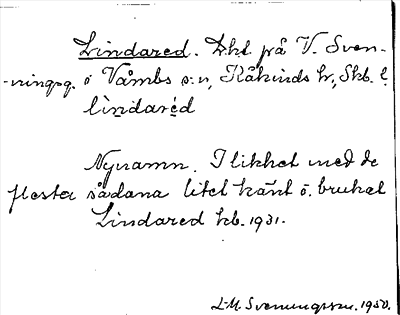 Lindared. Lht på V. Sven-
-ningsg. i Våmbs s:n, Kåkinds hr, Skb. l.
lìndaréd
Nynamn. I likhet med de
flesta sådana litet känt o. brukat
Lindared kb. 1931.
L-M. Svenungsson. 1950.